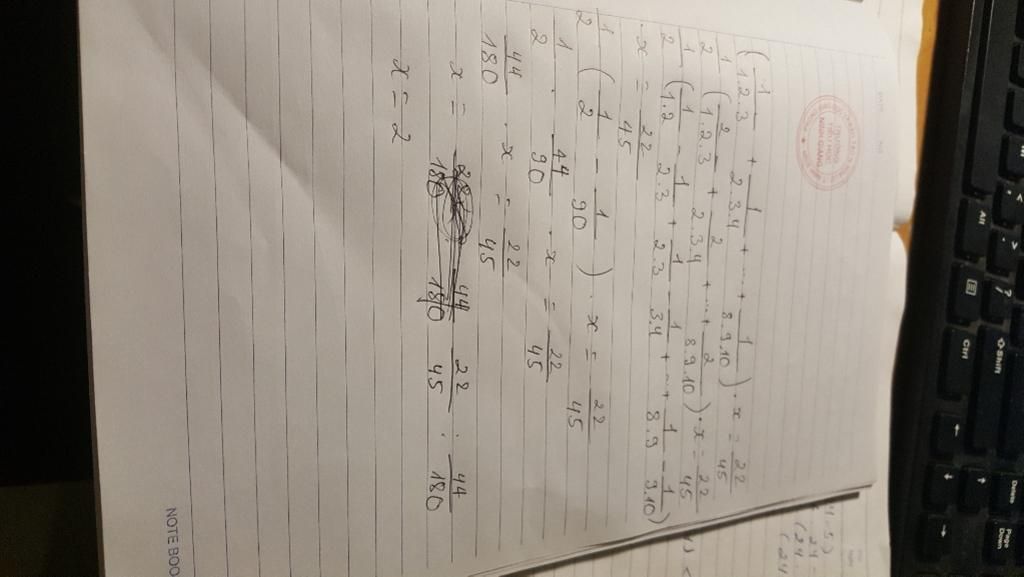 (1/1.2.3 + 1/2.3.4 + ... + 1/8.9.10) . x = 22/45
1/2 (2/1.2.3 + 2/2.3.4 + ... + 2/8.9.10) . x = 22/45
1/2 (1/1.2 - 1/2.3 + 1/2.3 - 1/3.4 + ... + 1/8.9 - 1/9.10)
. x = 22/45
1/2 (1/2 - 1/90) . x = 22/45
1/2 . 44/90 . x = 22/45
44/180 . x = 22/45
x = 22/45 : 44/180
x = 2
NOTEBOO
Alt
Ctrl
Shift
Page Down